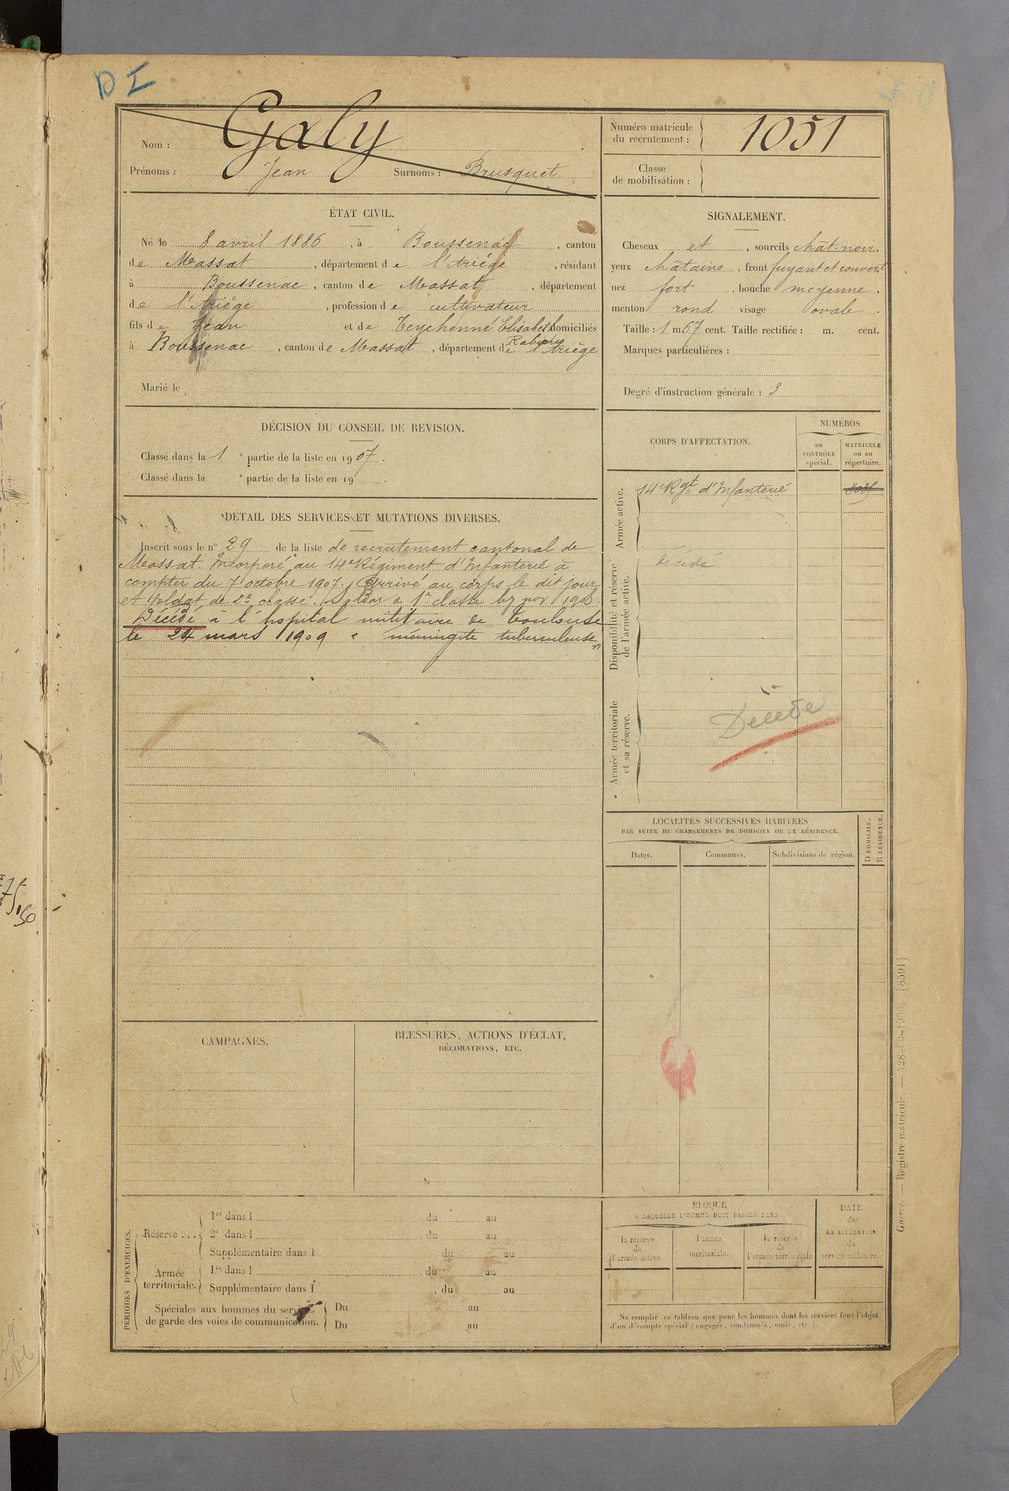 DI
Nom : Galy
Prénoms : Jean Surnoms : Brusquet
Numéro matricule
du recrutement : 1051
Classe
de mobilisation :
ÉTAT CIVIL.
Né le 8 avril 1886, à Boussenac, canton
de Massat, département de l'Ariège, résidant
à Boussenac, canton de Massat, département
de l'Ariège, profession de cultivateur
fils de Jean et de Teychenné Elisabeth domiciliés
à Boussenac, canton de Massat, département de l'Ariège
Marié le
SIGNALEMENT.
Cheveux et, sourcils chat-noir.
yeux chatains, front fuyant et couvert
nez fort, bouche moyenne.
menton rond visage ovale.
Taille : 1 m 67 cent. Taille rectifiée : m. cent.
Marques particulières :
Degré d'instruction générale : 3
DÉCISION DU CONSEIL DE REVISION.
Classé dans la 1e partie de la liste en 1907.
Classé dans la e partie de la liste en 19
CORPS D'AFFECTATION.
NUMÉROS
au
CONTRÔLE
spécial.
MATRICULE
ou au
répertoire.
Armée active.
14e Rgt d'Infanterie
Disponibilité et réserve
de l'armée active.
Décédé
Armée territoriale
et sa réserve.
Décédé
DÉTAIL DES SERVICES ET MUTATIONS DIVERSES.
Inscrit sous le n° 29 de la liste de recrutement cantonal de
Massat. Incorporé au 14e Régiment d'Infanterie à
compter du 7 octobre 1907. Arrivé au corps le dit jour
et soldat de 2e classe. Soldat de 1e classe le nov 1908
Décédé à l'hopital militaire de Toulouse
le 24 mars 1909 méningite tuberculeuse
LOCALITÉS SUCCESSIVES HABITÉES
PAR SUITE DE CHANGEMENTS DE DOMICILE OU DE RÉSIDENCE.
Dates.
Communes.
Subdivisions de région.
D DOMICILE.
R RÉSIDENCE.
CAMPAGNES.
BLESSURES, ACTIONS D'ÉCLAT,
DÉCORATIONS, ETC.
PÉRIODES D'EXERCICES.
Réserve . . .
1re dans l du au
2e dans l du au
Supplémentaire dans l du au
Armée
territoriale.
1re dans l du au
Supplémentaire dans l du au
Spéciales aux hommes du service
de garde des voies de communication.
Du au
Du au
ÉPOQUE
À LAQUELLE L'HOMME DOIT PASSER DANS
la réserve
de
l'armée active.
l'armée
territoriale.
la réserve
de
l'armée territoriale
DATE
de
LA LIBÉRATION
du
service militaire.
Ne remplir ce tableau que pour les hommes dont les services font l'objet
d'un décompte spécial (engagés, condamnés, omis, etc.).
Guerre. — Registre matricule.